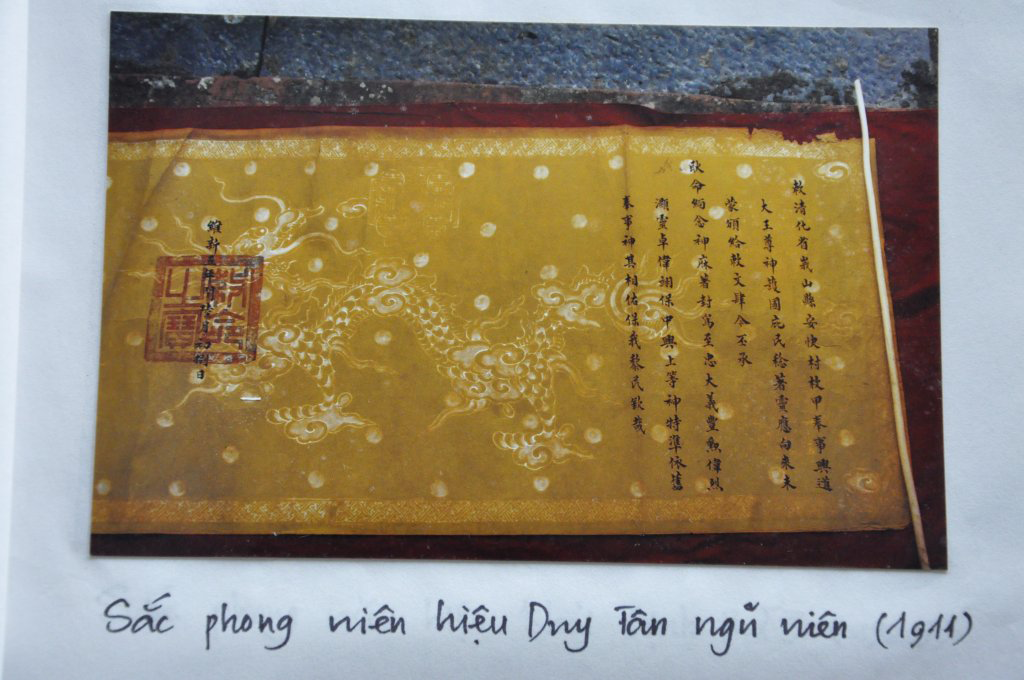 敕清化省峩山縣安快村枚甲奉事興道
大王尊神護國庇民稔著靈應向來未
蒙頒給敕文肆今丕承
耿命緬念神庥著封篤至忠大義豐勳偉烈
灝靈卓偉翊保中興上等神特準依舊
奉事神其相佑保我黎民欽哉
維新五年閏陸月初捌日
敕命之寶
Sắc phong niên hiệu Duy Tân ngũ niên (1911)